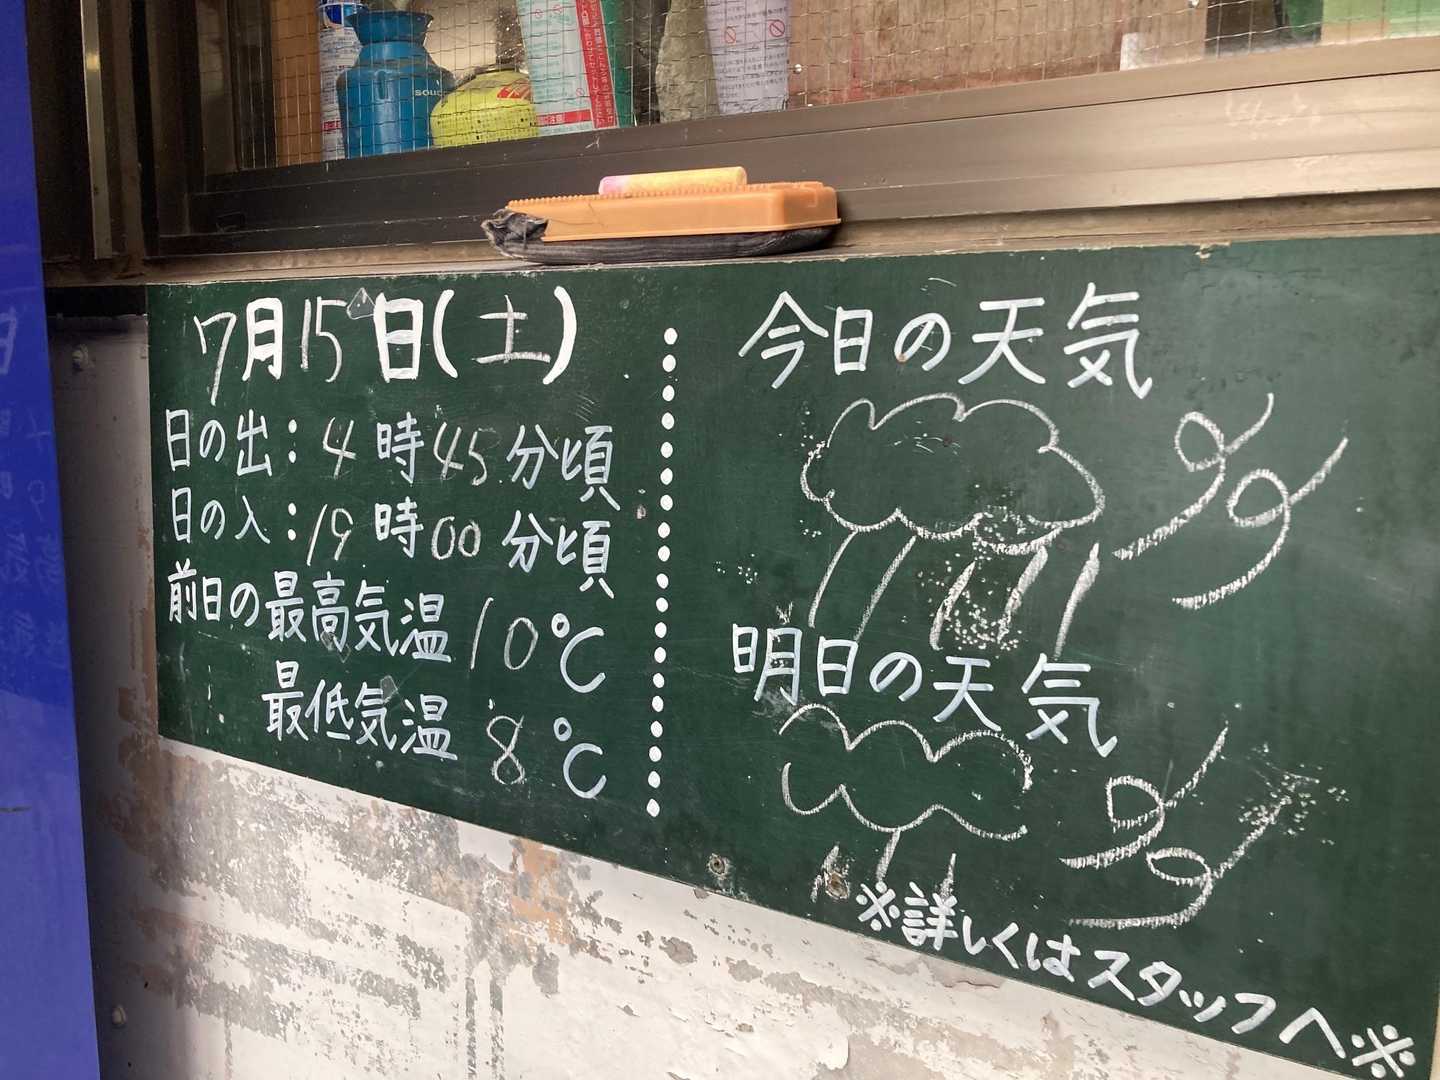 7月15日(土)
日の出：4時45分頃
日の入：19時00分頃
前日の最高気温 10℃
最低気温 8℃
今日の天気
明日の天気
※詳しくはスタッフへ※